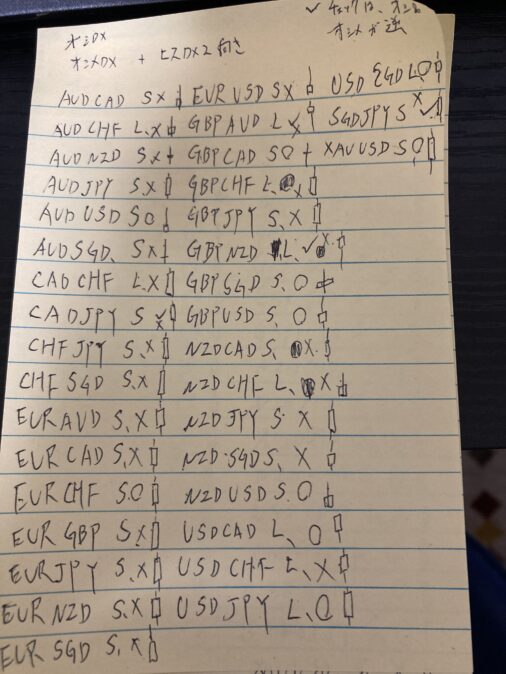 ✓ チェックは、オシム
オシメが逆
オシDX
オシメDX + ヒスDX2向き
AUDCAD S× EURUSD S× USDSGD L○
AUDCHF L.× GBPAUD L× SGDJPY S×✓
AUDNZD S.× GBPCAD S○ XAUUSD.S○
AUDJPY S.× GBPCHF L.×
AUDUSD S○ GBPJPY S.×
AUDSGD. S× GBPNZD L.✓×
CADCHF L.× GBPSGD S.○
CADJPY S.× GBPUSD S.○
CHFJPY S.× NZDCAD S.×
CHFSGD S.× NZDCHF L.×
EURAUD S.× NZDJPY S ×
EURCAD S.× NZD.SGD S.×
EURCHF S.○ NZDUSD S.○
EURGBP S.× USDCAD L.○
EURJPY S.× USDCHF L.×
EURNZD S.× USDJPY L.○
EURSGD S.×